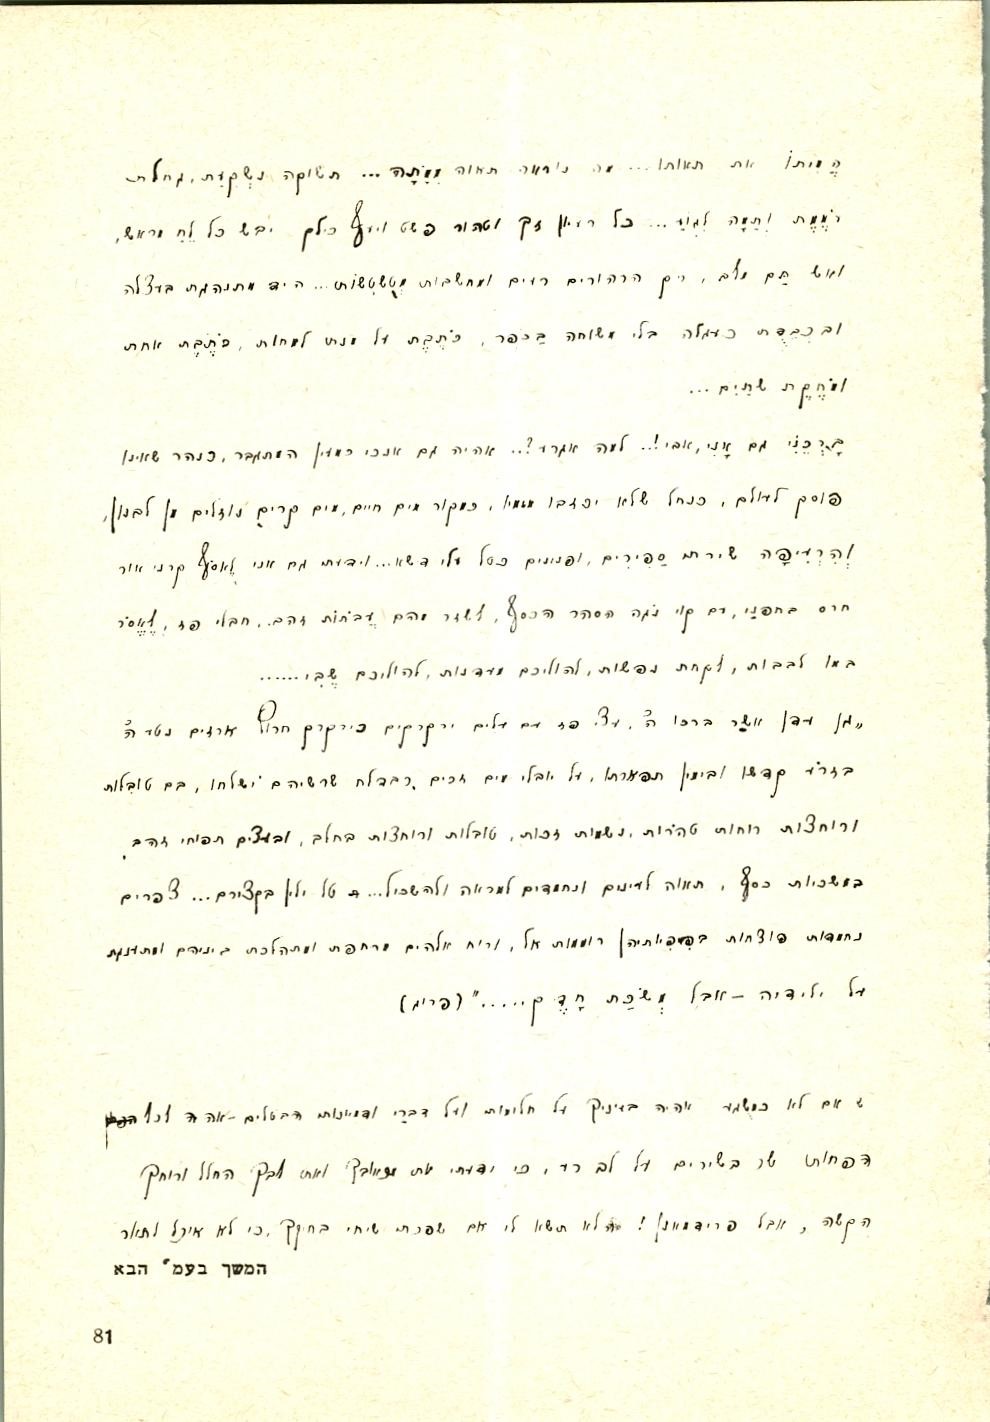 הֲמִיתוֹ את תאותו... מה נוראה תאוה מֵמִתָה... תשוקה נִשְׁקַעַת, גחלת
רוֹמֶמֶת וְתַמָּה לִגְוֹעַ... כל רעיון זך וטהור פשט ויעף כילק יבש כל לֵחַ מראש,
ואש תַּם מלב, ריק הרהורים רעים ומחשבות מְטֻשְׁטָשׁוֹת... היד מתנהגת בעצלה
ובִכְבֵדֻת כעגלה בלי משוחה בַּכפר, כּוֹתֶבֶת על מנת למחות, כּוֹתֶבֶת אחת
וּמוֹחֶקֶת שְׁתַּיִם...
בָּרְכֵנִי גם אָנִי, אבי!.. למה אגרע?.. אהיה גם אנכי כמעין המתגבר, כנהר שאינו
פוסק לעולם, כנחל שלא יכזבו מימיו, כמקור מים חיים, מים קרים נוזלים מן לבנון,
וְהַרְעִיפָה שירת סַפִּירִים, ופנינים כטל עלי דשא... וידעתי גם אני לֶאֱסֹף קרני אור
חרס בחפנַי, עם קוי נֹגה הסהר הכסף, לשזר מהם עֲבֹתוֹת זהב.., חבלי פז, לֶאֱסֹר
במו לבבות, לקחת נפשות, להוליכם מעדנות, להוליכם שֶׁבִי......
„גן עדן אשר ברכו ה', עצי פז עם עלים ירקרקים כירקרק חרוץ ארזים נטע ה'
בזרֹע קדשו ובימין תפארתו, על יובלי מים זכים כבדלח שרשיהם ישלחו, בם טובלות
ורוחצות רוחות טהֹרות, נשמות זכות, טובלות ורוחצות בחלב, ובעצים תפוחי זהב
במשכיות כסף, תאוה לעינים ונחמדים למראה ולהשכיל... טל ילין בקצירם... צפרים
נחמדות פוצחות בפיפיותיהן רוממות אל, ורוח אלהים מרחפת ומתהלכת ביניהם ומתענגת
על ילידיה – אבל מְשֻׂכַת חָדֶק....." (פרוג)
אם לא כמשֻגע אהיה בעיניך על חלומות ועל דברַי ודמיונות הבטלים – אהה
הפחות שר בשירים על לב רע, כי ידעתי את מכאובך ואת לבך החלל ורוחך
הקשה, אבל פרידמאנן! הלא תשא לי אם שפכתי שיחי בחיקך, כי לא אוכל לתאר
המשך בעמ' הבא
81